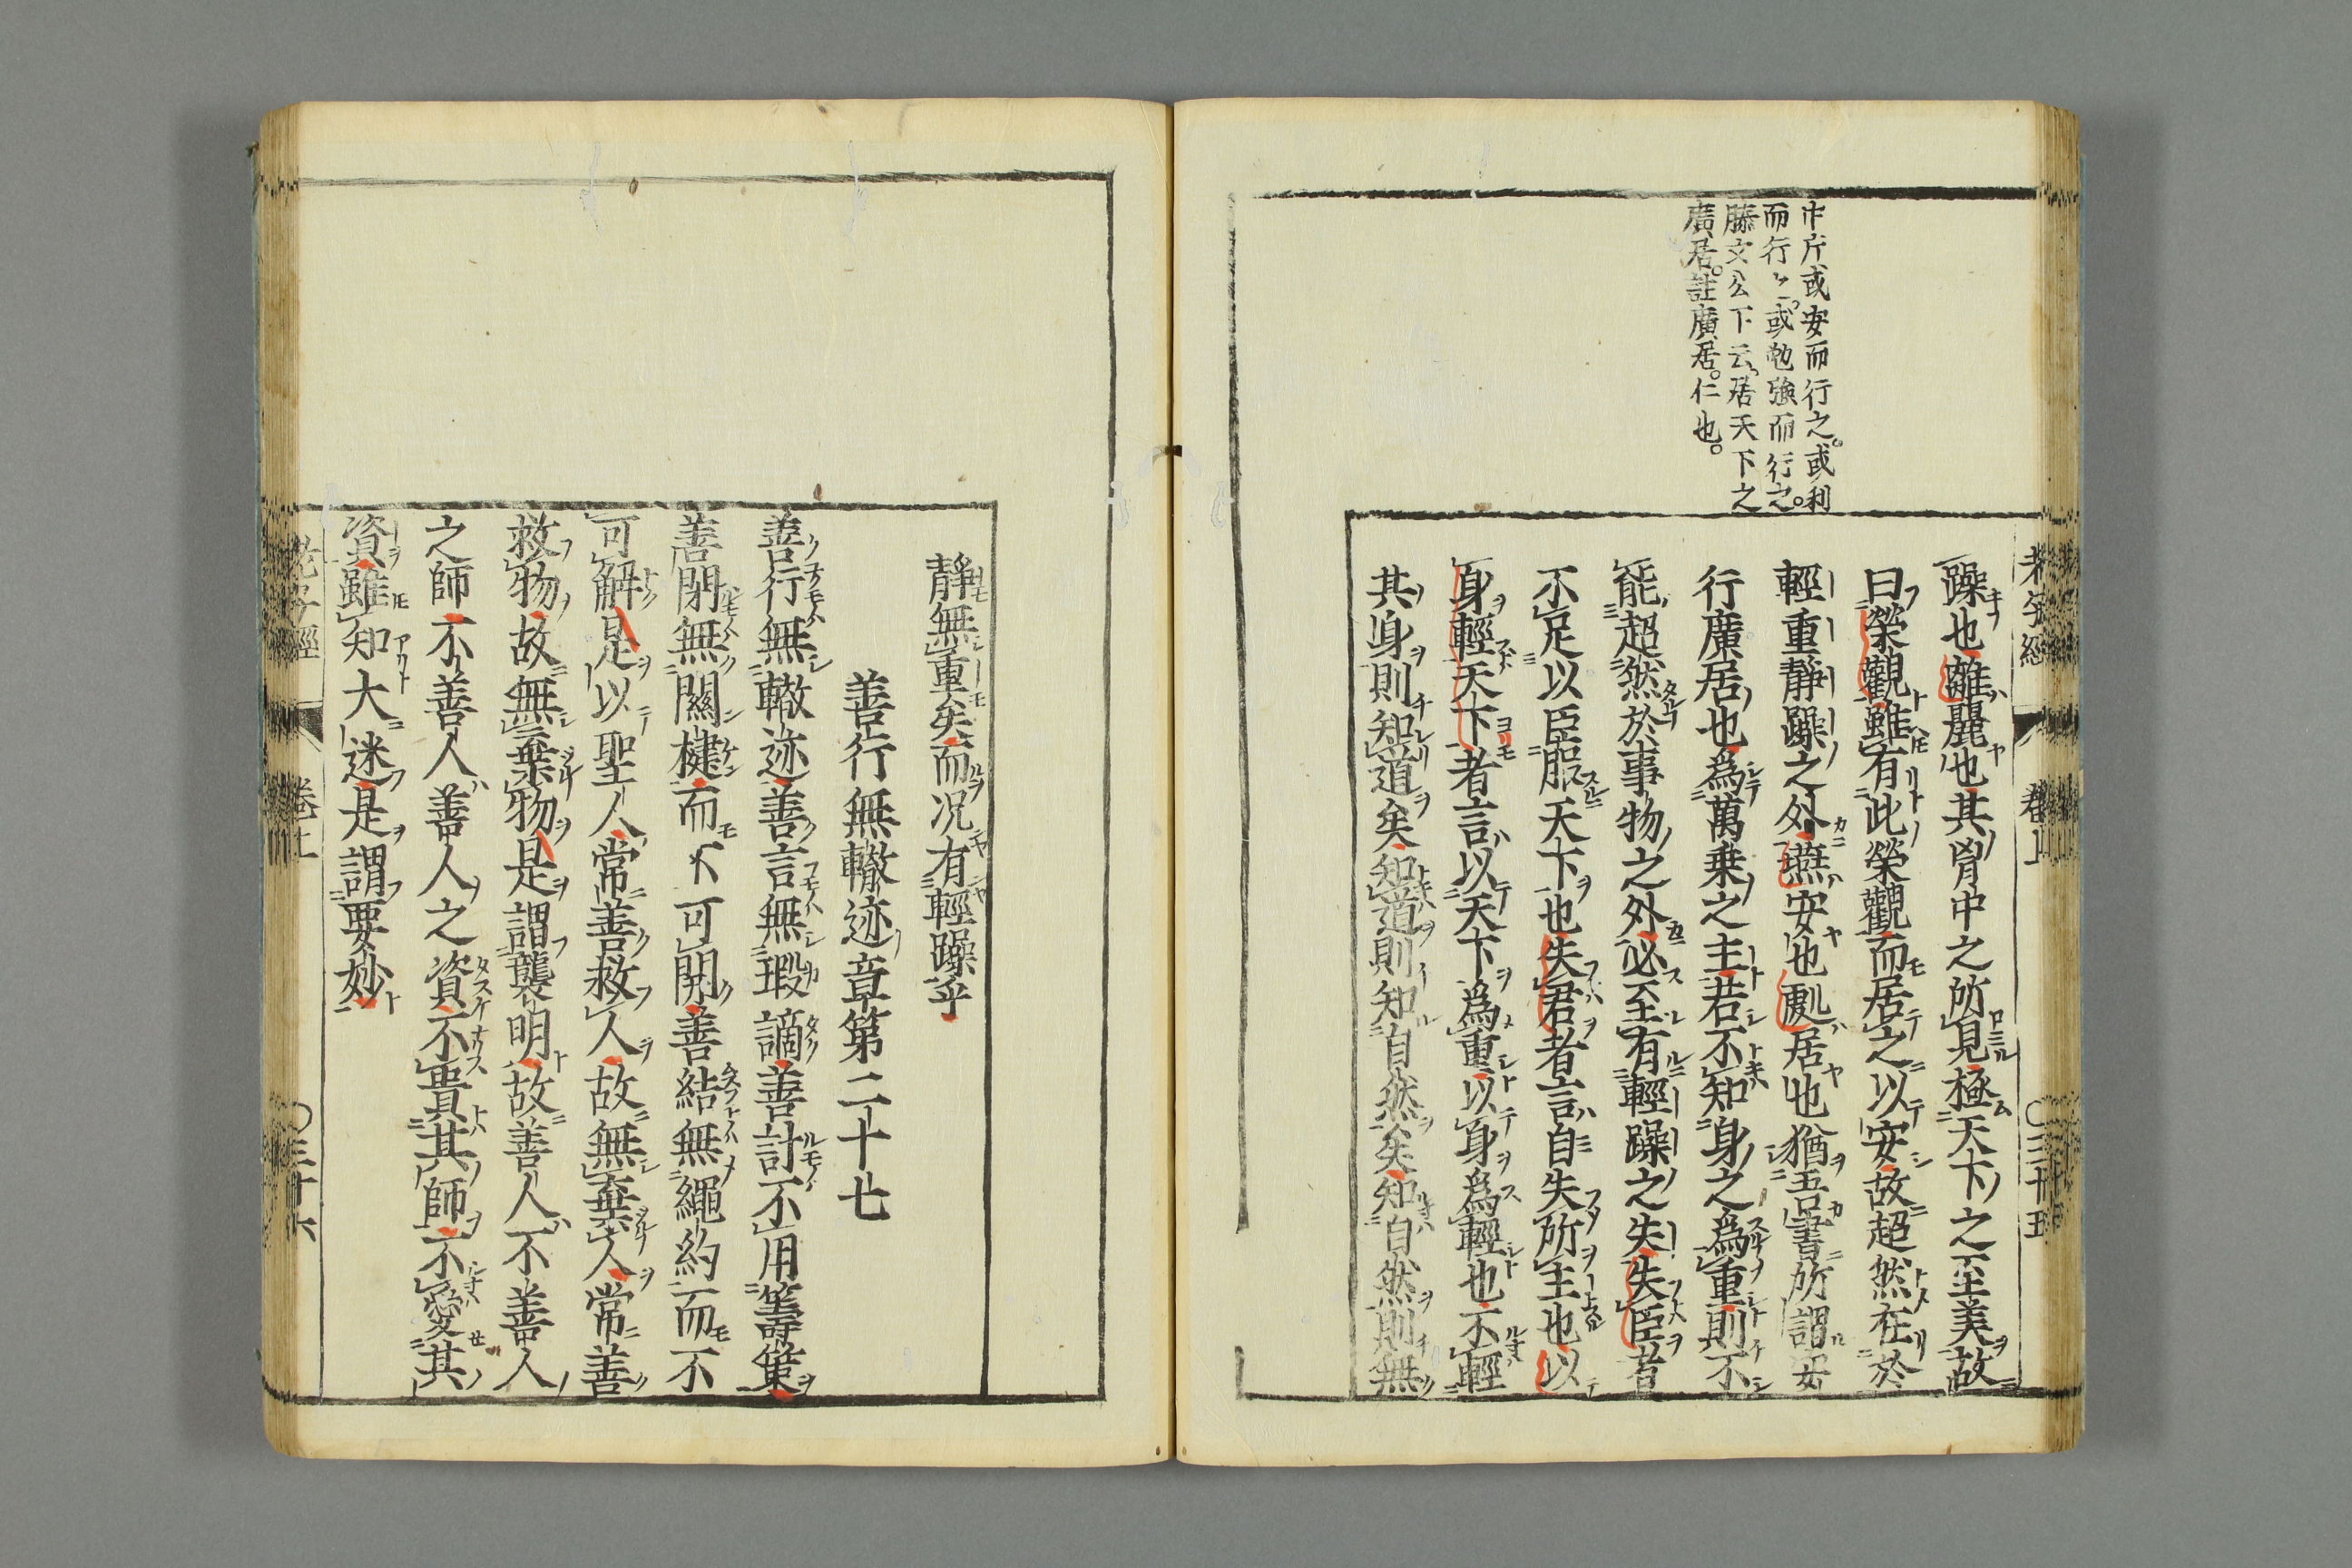 中斤或安而行之。或利
而行之。或勉強而行之。
滕文公下云。居天下之
廣居。註廣居。仁也。
老子經 卷上 〇三十五
躁也離麗也其胷中之所見極天下之至美故
曰榮觀雖有此榮觀而居之以安故超然在於
輕重靜躁之外燕安也處居也猶吾書所謂安
行廣居也爲萬乗之主若不知身之爲重則不
能超然於事物之外必至有輕躁之失失臣者
不足以臣服天下也失君者言自失所主也以
身輕天下者言以天下爲重以身爲輕也不輕
其身則知道矣知道則知自然矣知自然則無
靜無重矣而况有輕躁乎
善行無轍迹章第二十七
善行無轍迹善言無瑕謫善計不用籌策
善閉無關楗而不可開善結無繩約而不
可解是以聖人常善救人故無棄人常善
救物故無棄物是謂襲明故善人不善人
之師不善人善人之資不貴其師不愛其
資雖知大迷是謂要妙
老子經 卷上 〇三十六